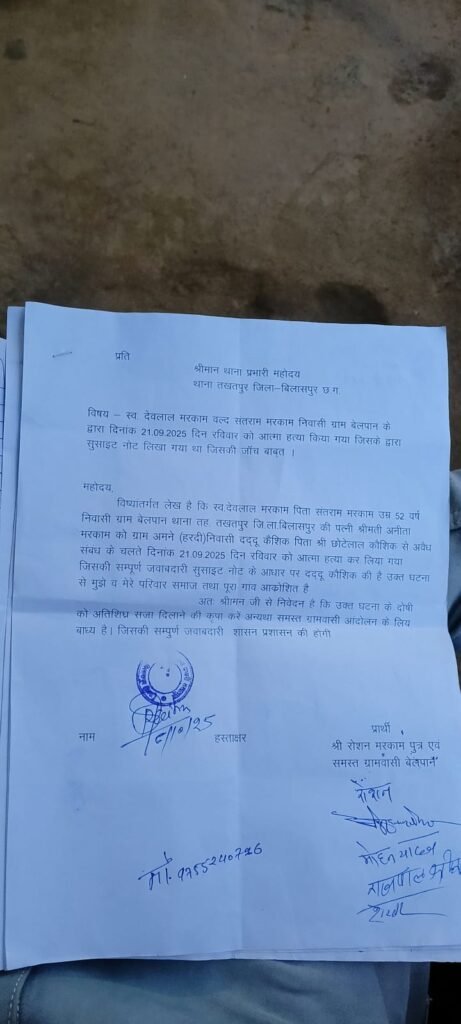 प्रति
श्रीमान थाना प्रभारी महोदय
थाना तखतपुर जिला–बिलासपुर छ.ग.
विषय – स्व. देवलाल मरकाम वल्द सतराम मरकाम निवासी ग्राम बेलपान के
द्वारा दिनांक 21.09.2025 दिन रविवार को आत्मा हत्या किया गया जिसके द्वारा
सुसाइट नोट लिखा गया था जिसकी जॉच बाबूत ।
महोदय,
विष्यांतर्गत लेख है कि स्व.देवलाल मरकाम पिता सतराम मरकाम उम्र 52 वर्ष
निवासी ग्राम बेलपान थाना तह. तखतपुर जि.ला.बिलासपुर की पत्नी श्रीमती अनीता
मरकाम को ग्राम अमने (हरदी)निवासी दददू कैशिक पिता श्री छोटेलाल कौशिक से अवैध
संबध के चलते दिनांक 21.09.2025 दिन रविवार को आत्मा हत्या कर लिया गया
जिसकी सम्पूर्ण जवाबदारी सुसाइट नोट के आधार पर दददू कौशिक की है उक्त घटना
से मुझे व मेरे परिवार समाज तथा पूरा गाव आकोशित है
अतः श्रीमन जी से निवेदन है कि उक्त घटना के दोषी
को अतिशिघ्र सजा दिलाने की कृपा करें अन्यथा समस्त ग्रामवासी आदोलन के लिय
बाध्य है। जिसकी सम्पुर्ण जवाबदारी शासन प्रशासन की होगी
नाम हस्ताक्षर
प्रार्थी
श्री रोशन मरकाम पुत्र एवं
समस्त ग्रामवासी बेलपान
रोशन
मोहन यादव
मो. 9755240726